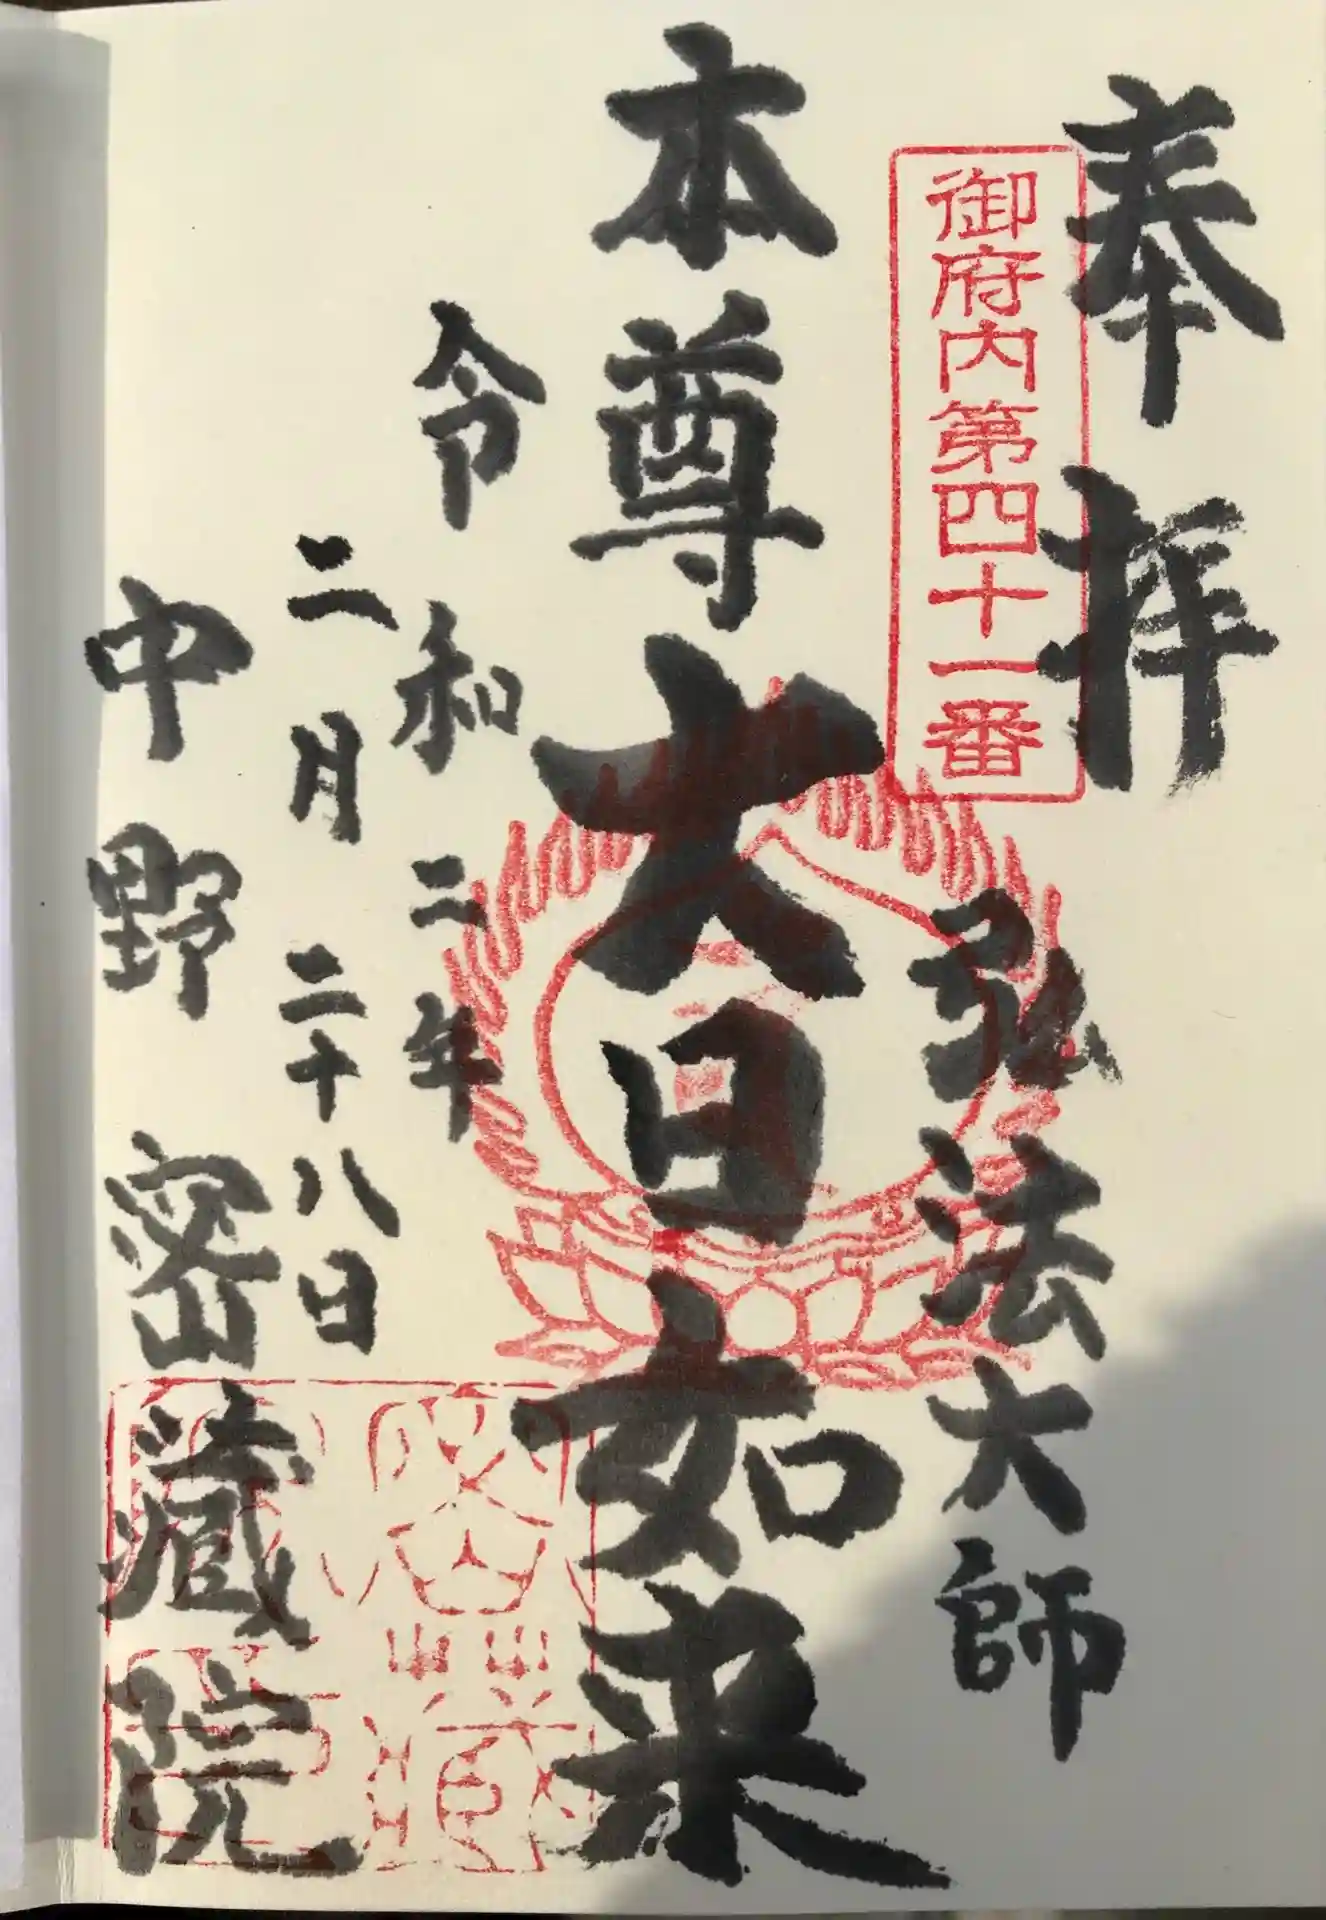 奉拝
御府内第四十一番
弘法大師
本尊大日如来
令和二年
二月二十八日
中野密蔵院